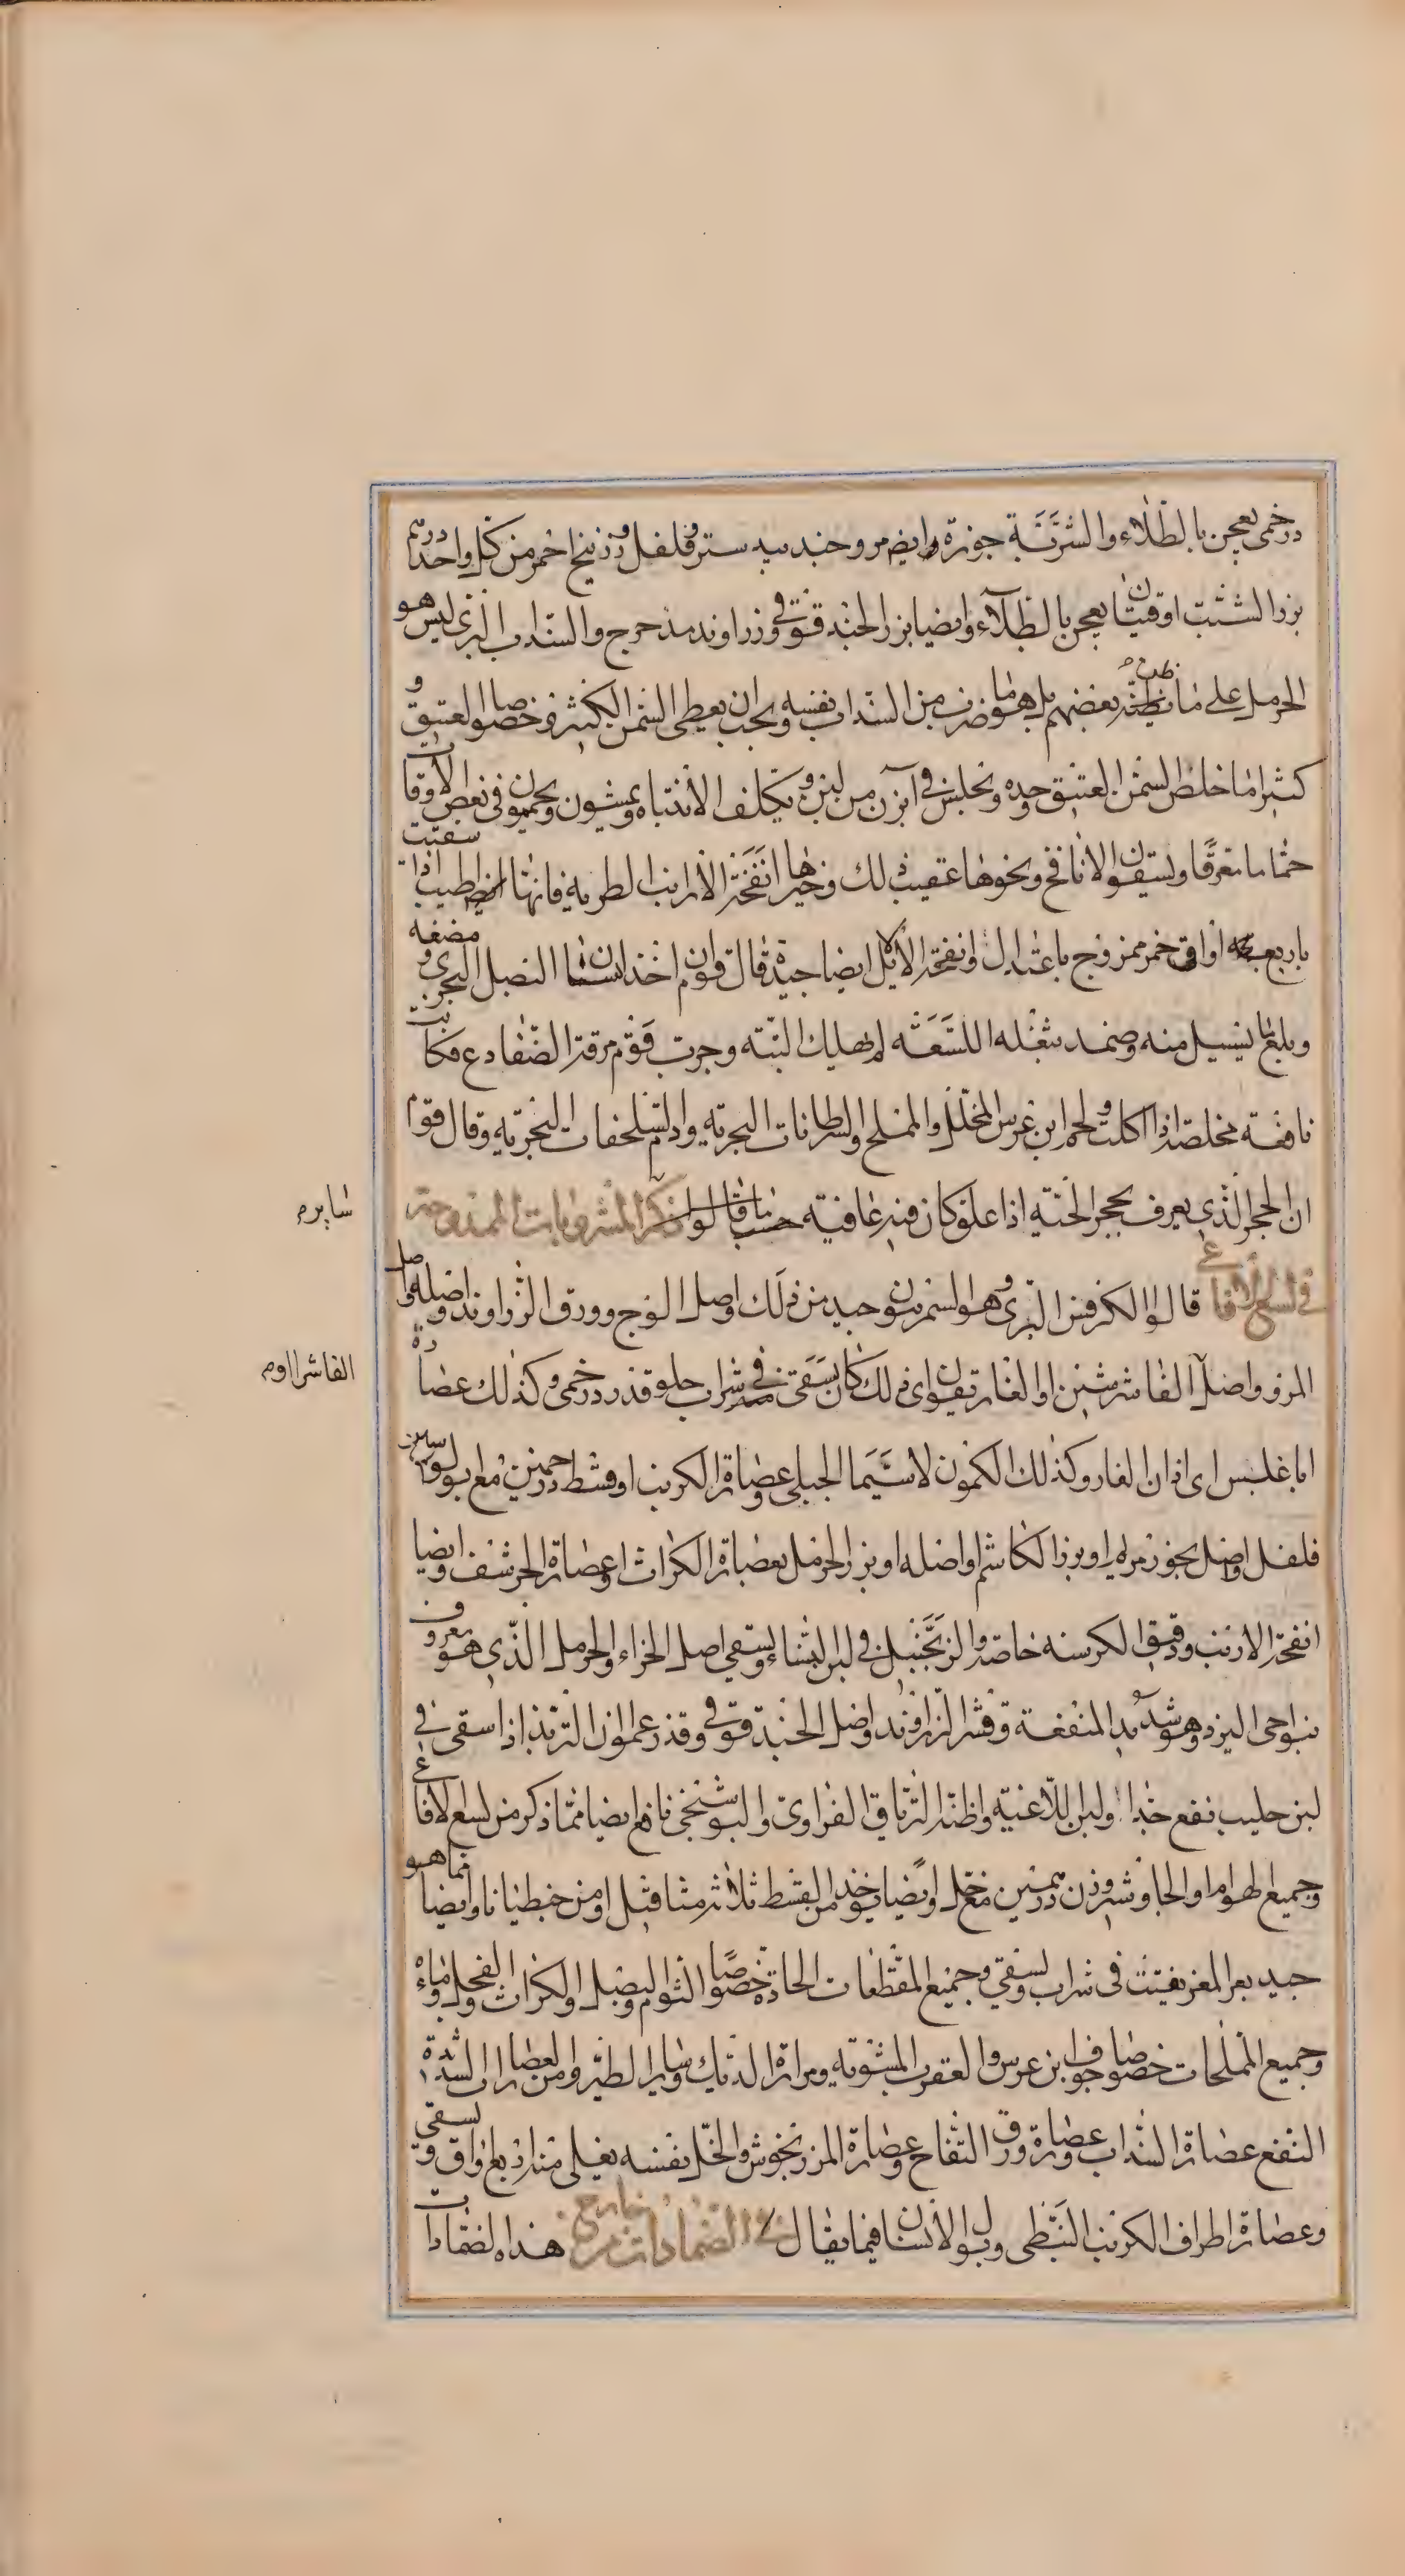 درخمى يعجن بالطلاء والشربة جوزة وايضا مر وجندبيدستر وفلفل وزرنيخ احمر من كل واحد درهم
بزر الشبت اوقيتان يعجن بالطلاء وايضا بزر الحندقوقى وزراوند مدحرج والسذاب البرى ليس هو
الحرمل على ما يظنه بعضهم بل هو ما ضرب من السذاب نفسه ويجب ان يعطى السمن الكثير وخصوصا العتيق
كثيرا ما خلص السمن العتيق وحده ويجلس فى آبزن من لبن ويتكلف الانتباه ويمشون ويحمون فى بعض الاوقات
حماما معرقا ويسقون الانافح ونحوها عقيب ذلك وخيرها انفحة الارانب الطرية فانها اطيب اذا سقيت
باربع اواق خمر ممزوج باعتدال وانفحة الايل ايضا جيدة قال قوم ان اخذ انسان البصل البحرى مضغه
وبلع ما يسيل منه وضمد بثفله اللسعة لم يهلك البتة وجرب قوم مرقة الضفادع فكانت
نافعة مخلصة اذا اكلت ولحم ابن عرس المخلل والمملح والسرطانات البحرية ودم السلحفات البحرية وقال قوم
ان الحجر الذى يعرف بحجر الحية اذا علق كان فيه عافية حسب ما قالوا ذكر المشروبات الممدوحة
فى لسع الافاعى قالوا الكرفس البرى وهو السمرنيون جيد من ذلك واصل الوج وورق الزراوند واصله واصل
المرو واصل الفاشرشين او الغاريقون اى ذلك كان يسقى فى شراب حلو قدر درخمى وكذلك عصارة
اباغلبس اى اذان الفار وكذلك الكمون لا سيما الجبلى وعصاة الكرنب او قسط درهمين مع ابولوسين
فلفل واصل بخور مريم او بزر الكاشم او اصله او بزر الحرمل بعصارة الكراث او عصارة الحرشف وايضا
انفحة الارنب ودقيق الكرسنه خاصة والزنجبيل فى لبن النساء ويسقى اصل الخزاء والحرمل الذى هو معروف
بنواحى اليزد وهو شديد المنفعة وقشر الزراوند واصل الحندقوقى وقد زعموا ان الترنذ اذا سقى فى
لبن حليب نفع جدا ولبن اللاعية واظن الترياق الفراوى والبوشنجى نافع ايضا مما ذكر من لسع الافاعى
وجميع الهوام او الجاوشير وزن درهمين مع خل وايضا يوخذ من القسط ثلاثة مثاقيل او من جنطيانا وايضا مما هو
جيد بعر المعز يفتت فى شراب ويسقى وجميع المقطعات الحادة خصوصا الثوم والبصل والكراث والفجل وماءه
وجميع المملحات خصوصا جوف ابن عرس والعقرب المشوية ومرارة الديك وساير الطير ومن العصارات الشديدة
النفع عصارة السذاب وعصارة ورق التفاح وعصارة المرزنجوش والخل نفسه يغلى منه اربع اواق ويسقى
وعصارة اطراف الكرنب النبطى وبول الانسان فيما يقال فى الضمادات من خارج هذه الضمادات